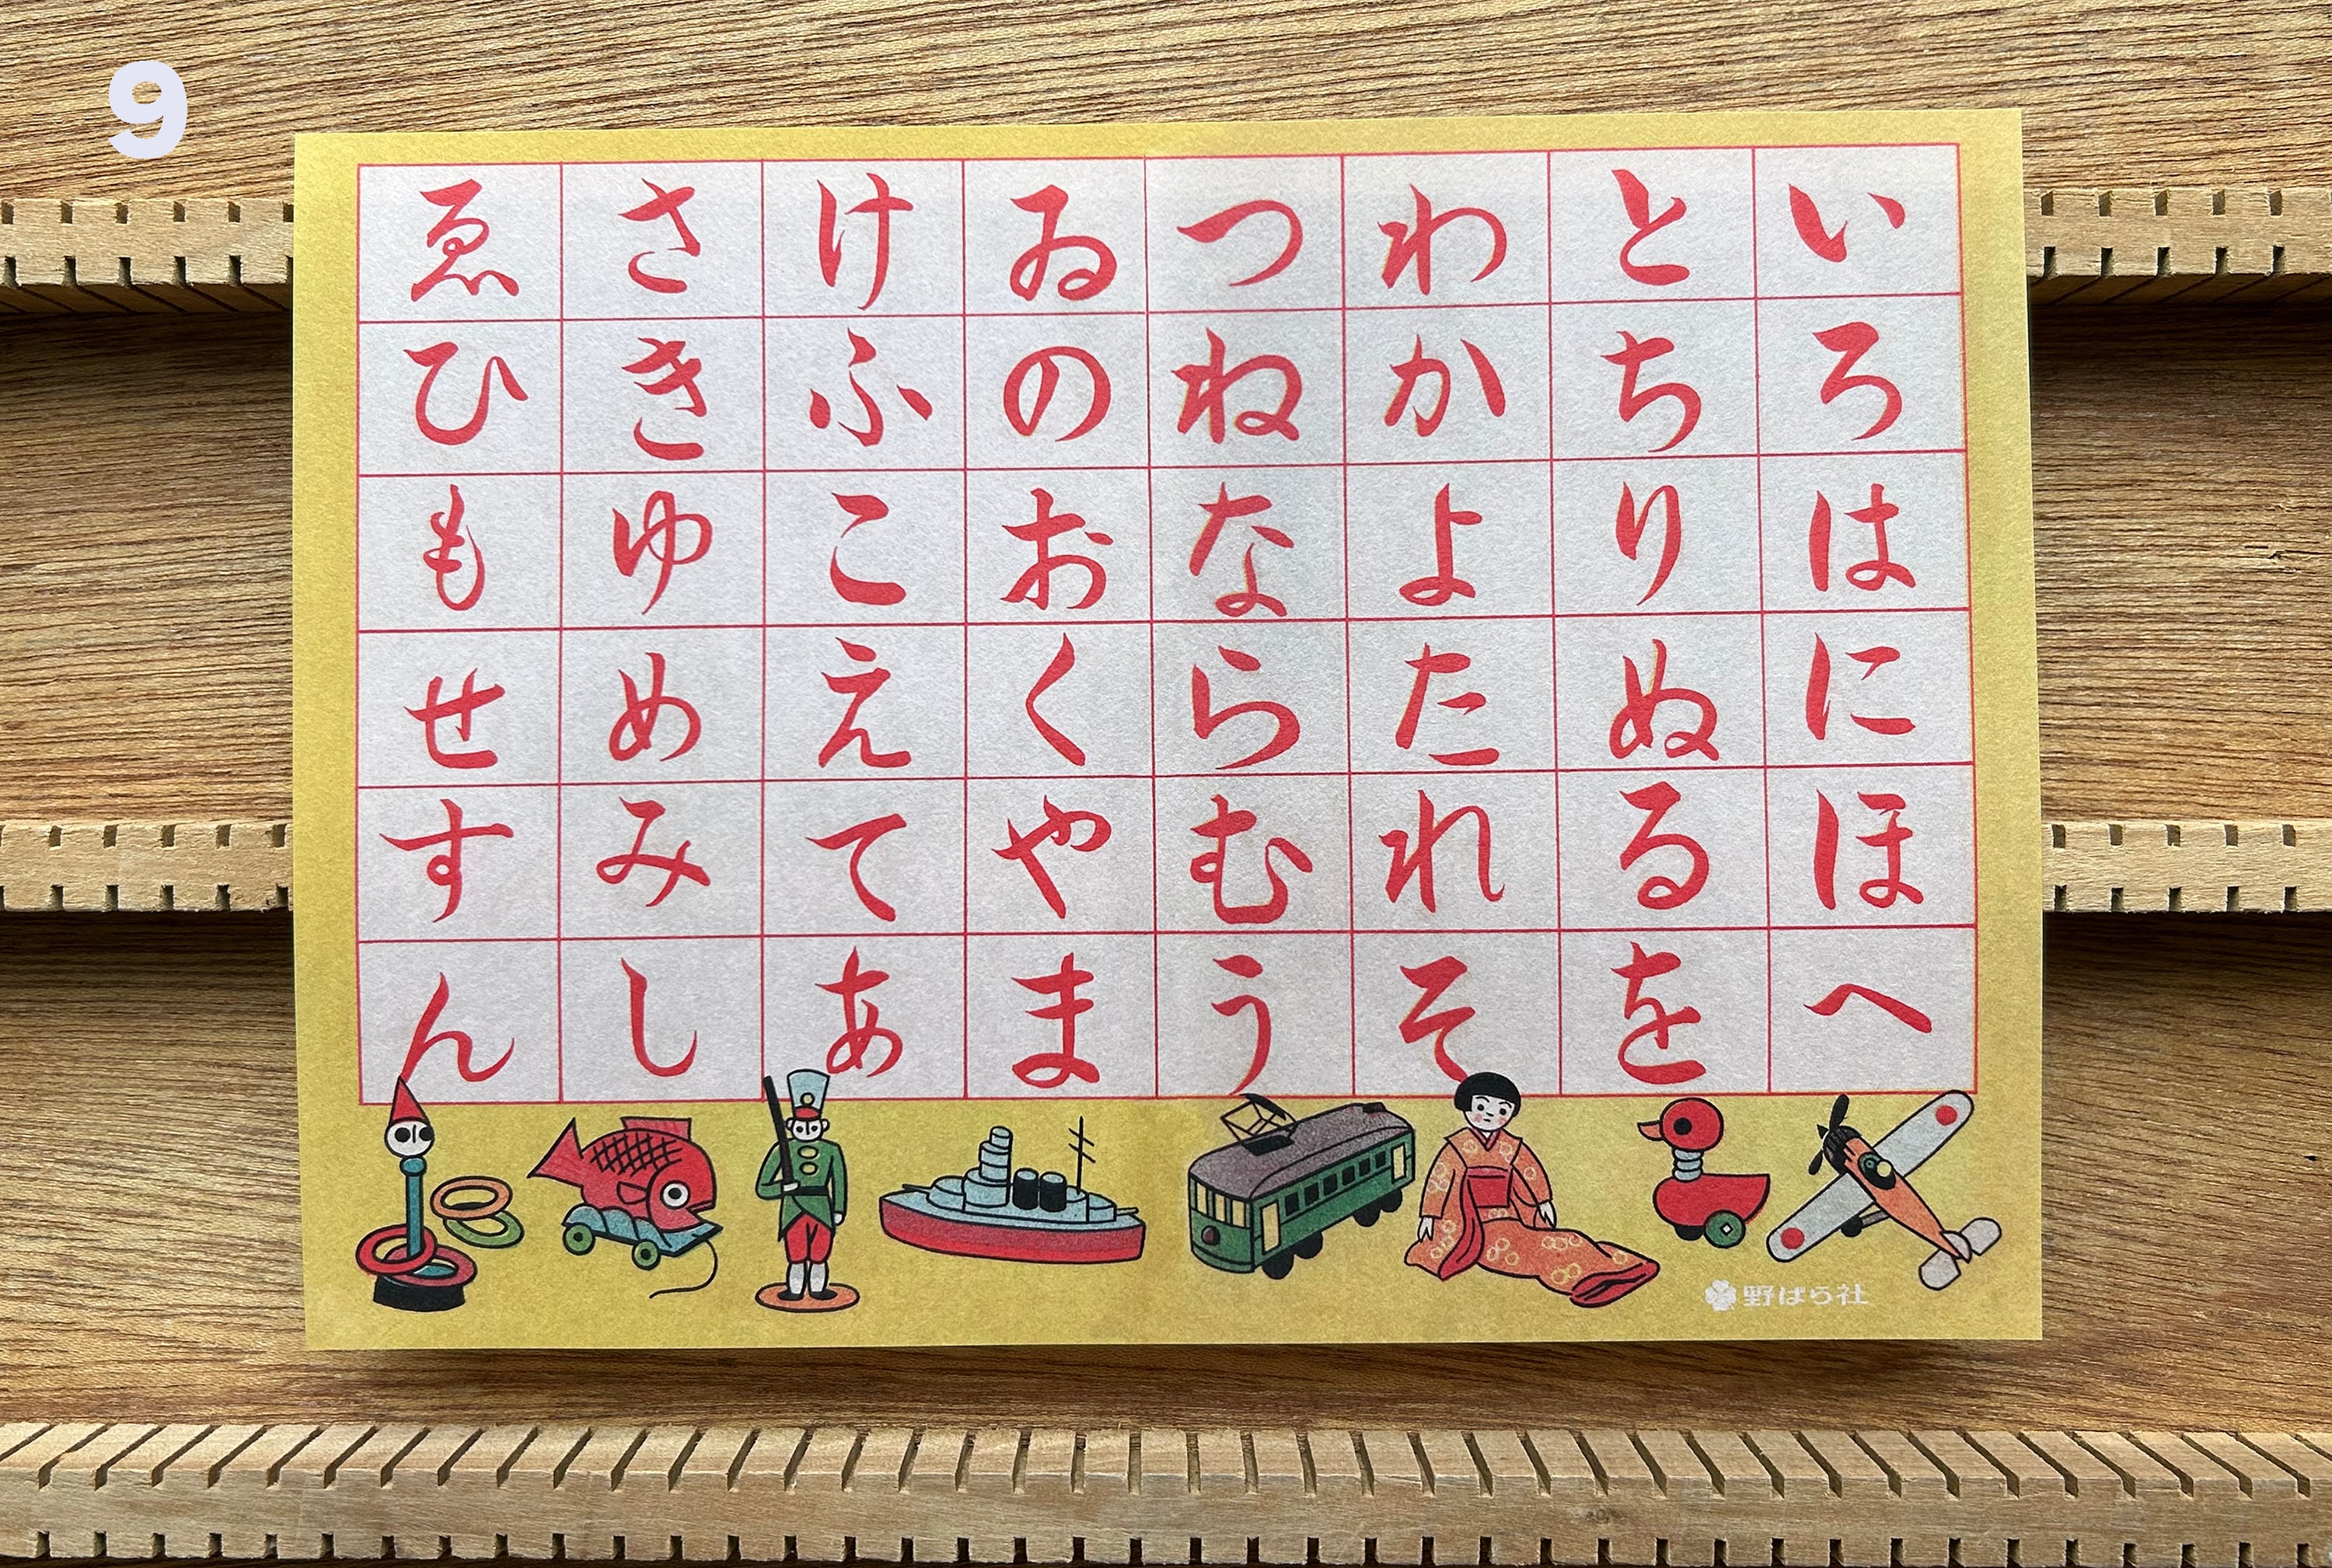 9
いろはにほへ
とちりぬるを
わかよたれそ
つねならむう
ゐのおくやま
けふこえてあ
さきゆめみし
ゑひもせすん
野ばら社